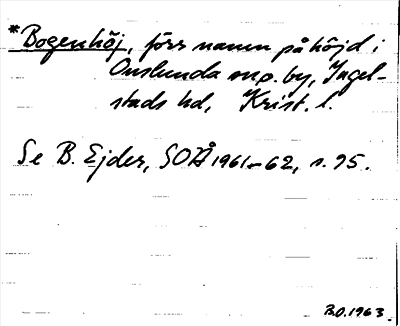 *Bogenhöj, förr namn på höjd i
Onslunda sn o. by, Ingel-
stads hd, Krist. l.
Se B. Ejder, SOÅ 1961–62, s. 95.
B.O. 1963.